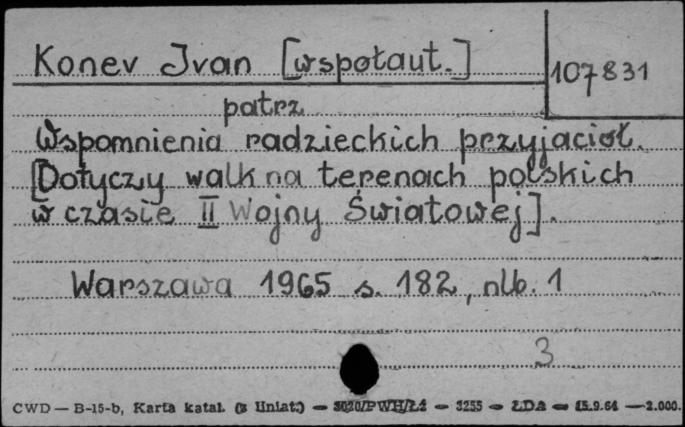 Konev Ivan [współaut.]
107831
patrz
Wspomnienia radzieckich przyjaciół.
[Dotyczy walk na terenach polskich
w czasie II Wojny Światowej].
Warszawa 1965 s. 182, nlb. 1
3
CWD — B-15-b, Karta katal. (z liniat.) — 3020/PWH/Ł2 — 3255 — ŁDA — 15.9.64 — 2.000.